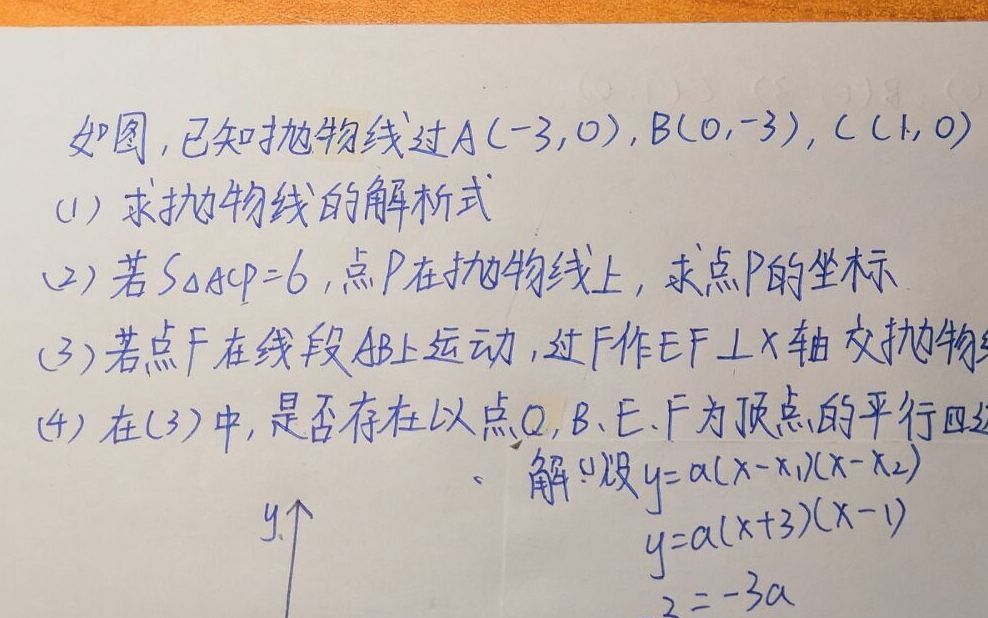 如图,已知抛物线过A(-3,0),B(0,-3),C(1,0)
(1) 求抛物线的解析式
(2) 若S△ACP=6,点P在抛物线上,求点P的坐标
(3) 若点F在线段AB上运动,过F作EF⊥X轴交抛物
(4) 在(3)中,是否存在以点Q,B、E、F为顶点的平行四
解:(1)设y=a(x-x₁)(x-x₂)
y=a(x+3)(x-1)
y
=-3a